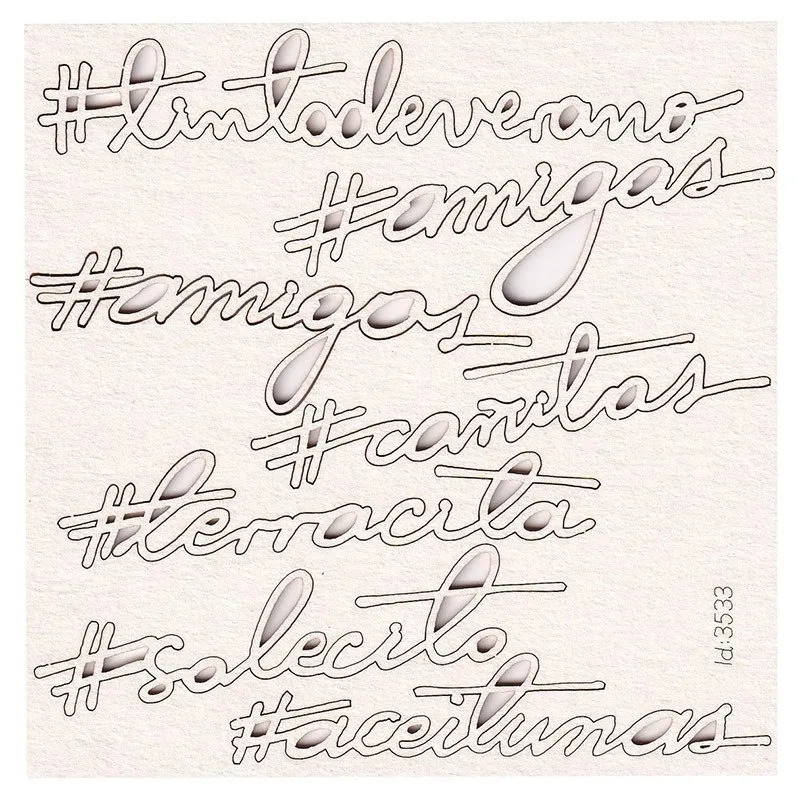 #tintodeverano
#amigas
#amigos
#cañitas
#terracita
#solecito
#aceitunas
Id:3533